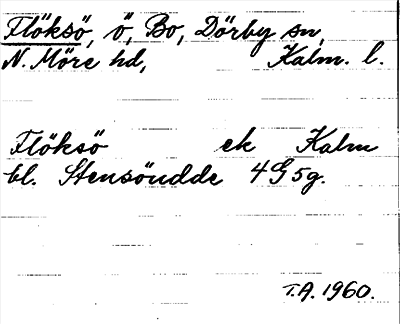 Flöksö, ö, Bo, Dörby sn,
N. Möre hd, Kalm. l.
Flöksö ek Kalm
bl. Stensöudde 4G5g.
T.A. 1960.